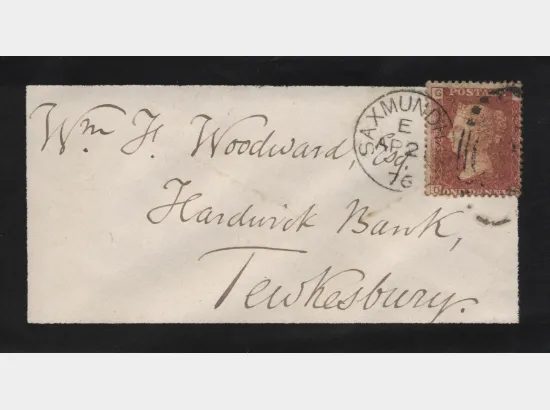 Wm F. Woodward,
Esq.
Hardwick Bank,
Tewkesbury.
SAXMUNDH
E
AP 2
76
G
POSTA
ONE PENNY